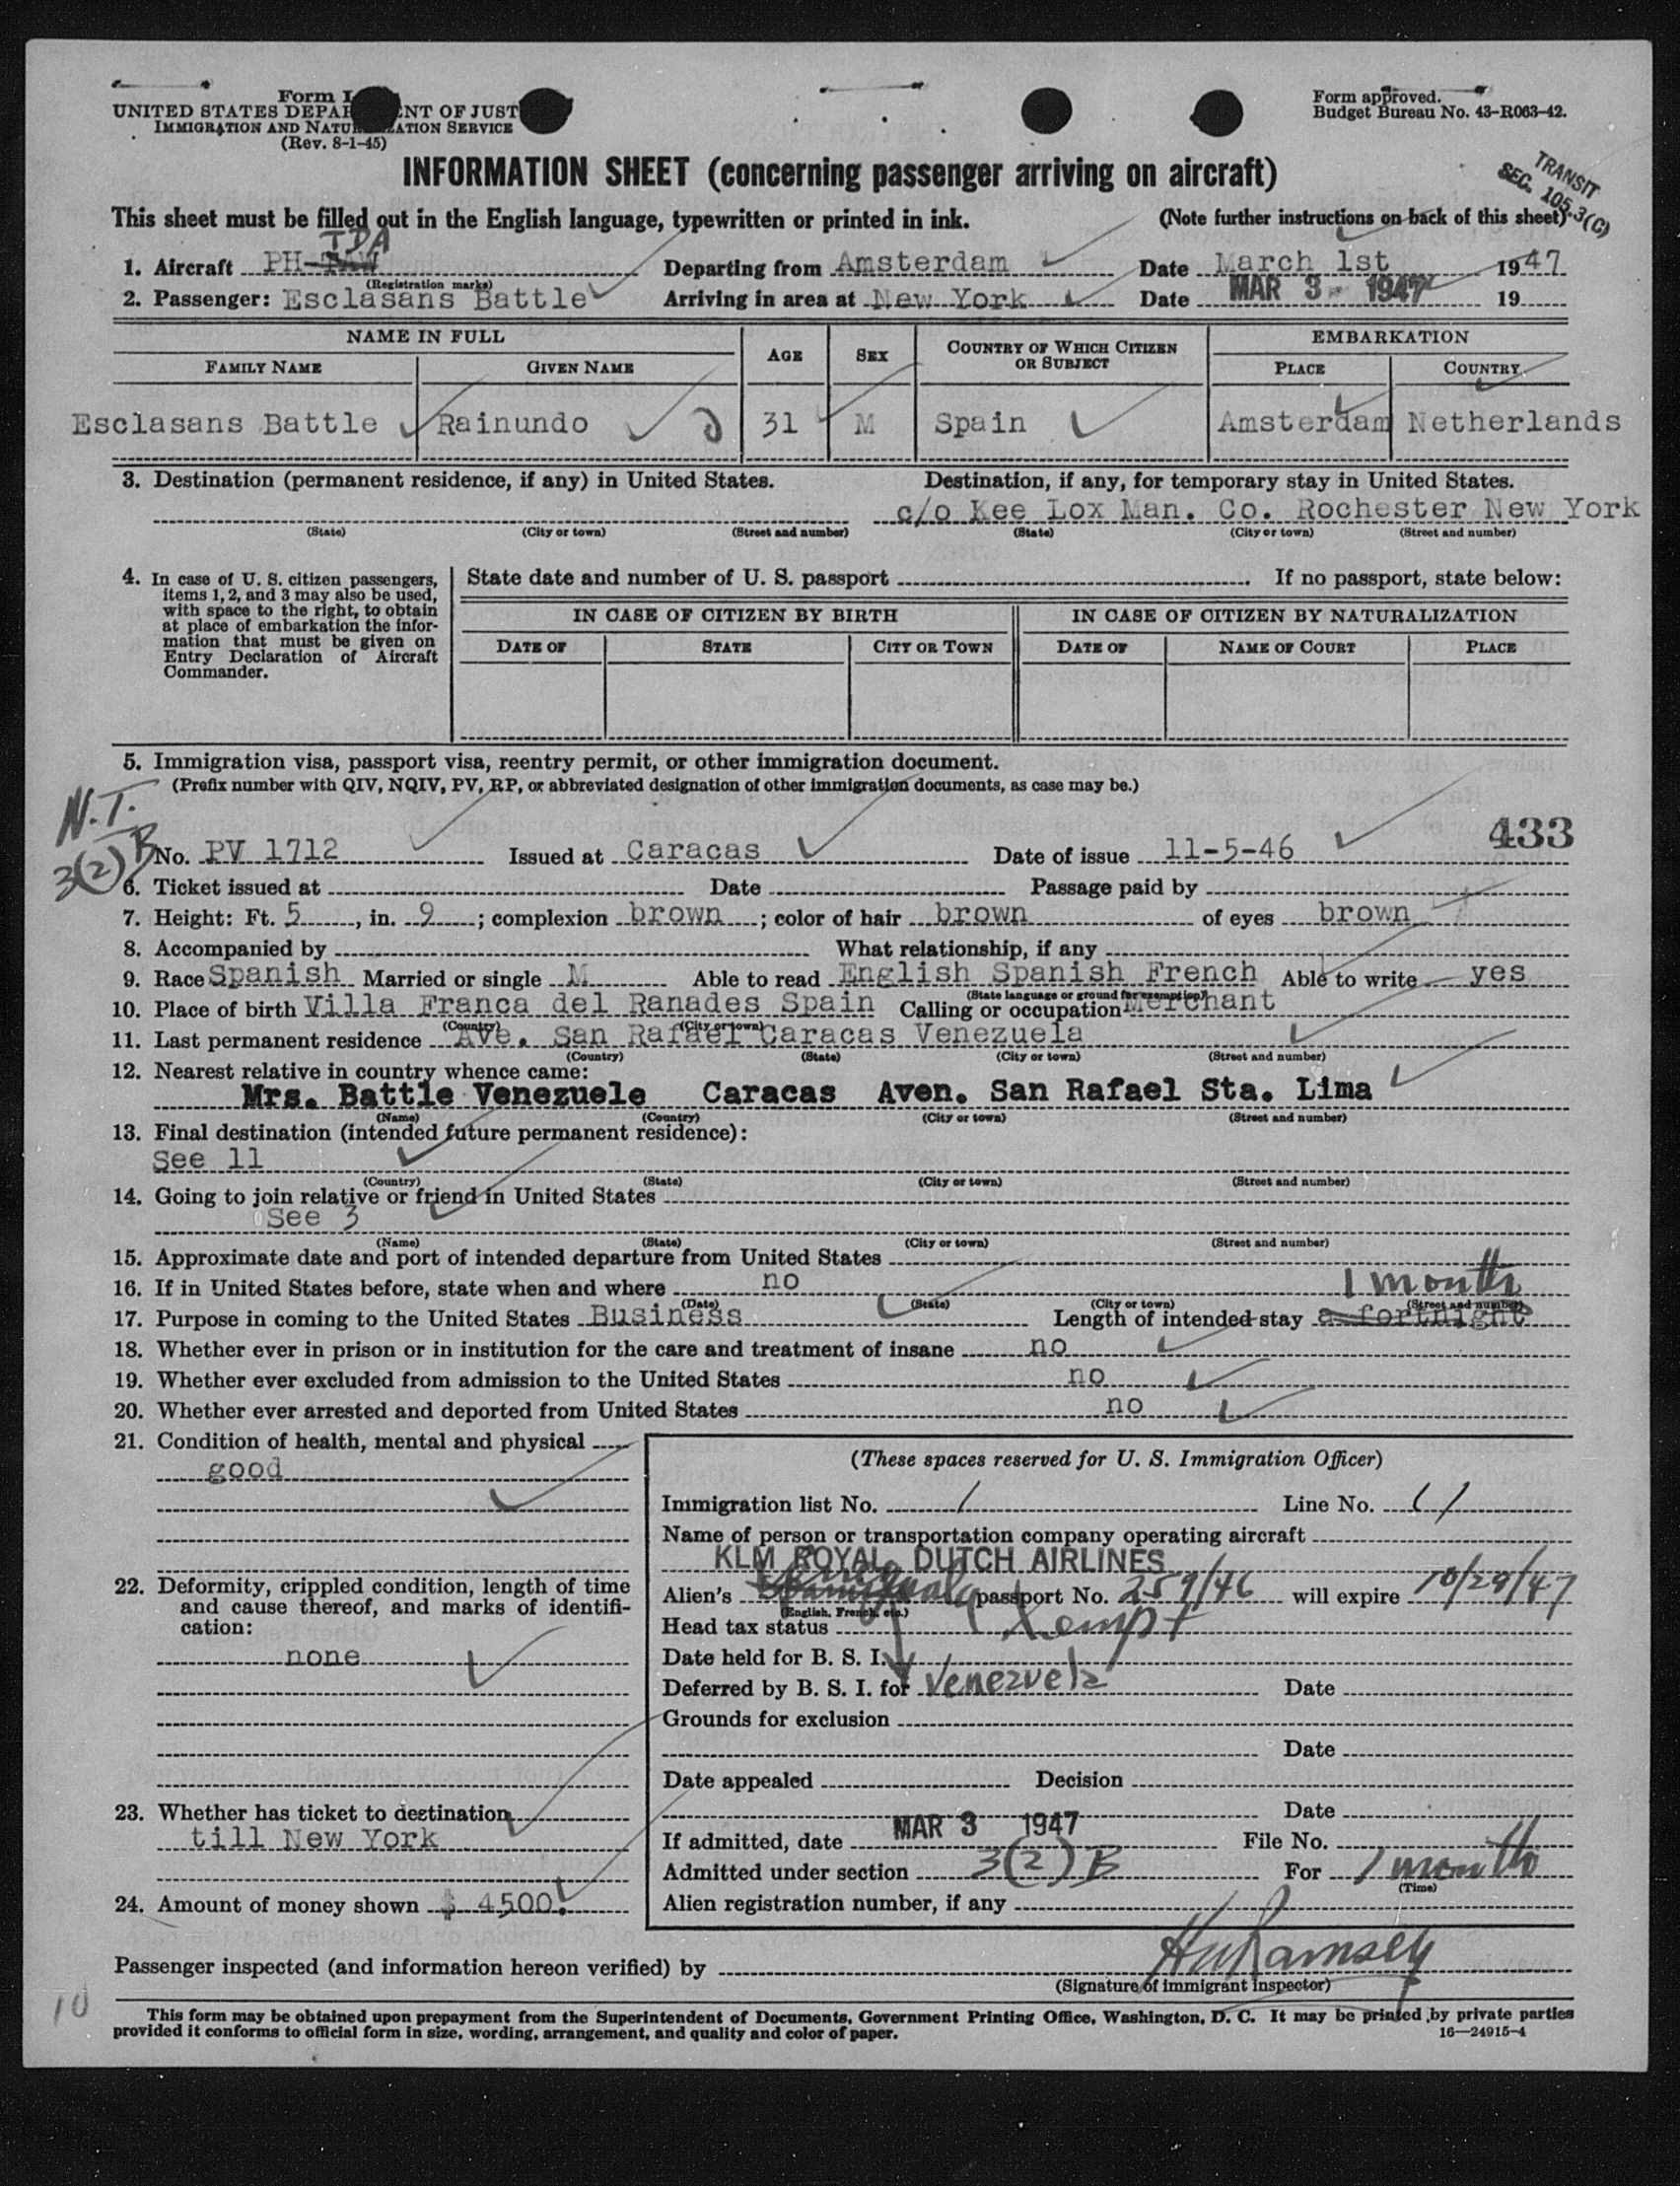 Form I
UNITED STATES DEPAR ENT OF JUST
IMMIGRATION AND NATU ATION SERVICE
(Rev. 8-1-45)
Form approved.
Budget Bureau No. 43-R063-42.
INFORMATION SHEET (concerning passenger arriving on aircraft)
TRANSIT
SEC. 105.3(C)
This sheet must be filled out in the English language, typewritten or printed in ink. (Note further instructions on back of this sheet)
TDA
1. Aircraft PH- Departing from Amsterdam Date March 1st 1947
(Registration marks)
2. Passenger: Esclasans Battle Arriving in area at New York Date MAR 3 - 1947 19
NAME IN FULL AGE SEX COUNTRY OF WHICH CITIZEN OR SUBJECT EMBARKATION
FAMILY NAME GIVEN NAME PLACE COUNTRY
Esclasans Battle Rainundo 31 M Spain Amsterdam Netherlands
3. Destination (permanent residence, if any) in United States. Destination, if any, for temporary stay in United States.
c/o Kee Lox Man. Co. Rochester New York
(State) (City or town) (Street and number) (State) (City or town) (Street and number)
4. In case of U. S. citizen passengers, items 1, 2, and 3 may also be used, with space to the right, to obtain at place of embarkation the information that must be given on Entry Declaration of Aircraft Commander.
State date and number of U. S. passport . If no passport, state below:
IN CASE OF CITIZEN BY BIRTH IN CASE OF CITIZEN BY NATURALIZATION
DATE OF STATE CITY OR TOWN DATE OF NAME OF COURT PLACE
5. Immigration visa, passport visa, reentry permit, or other immigration document.
(Prefix number with QIV, NQIV, PV, RP, or abbreviated designation of other immigration documents, as case may be.)
N.T.
3(2)B
433
No. PV 1712 Issued at Caracas Date of issue 11-5-46
6. Ticket issued at Date Passage paid by
7. Height: Ft. 5, in. 9; complexion brown; color of hair brown of eyes brown
8. Accompanied by What relationship, if any
9. Race Spanish Married or single M Able to read English Spanish French Able to write yes
(State language or ground for exemption)
10. Place of birth Villa Franca del Ranades Spain Calling or occupation Merchant
(Country) (City or town)
11. Last permanent residence Ave. San Rafael Caracas Venezuela
(Country) (State) (City or town) (Street and number)
12. Nearest relative in country whence came:
Mrs. Battle Venezuele Caracas Aven. San Rafael Sta. Lima
(Name) (Country) (City or town) (Street and number)
13. Final destination (intended future permanent residence):
See 11
(Country) (State) (City or town) (Street and number)
14. Going to join relative or friend in United States
See 3
(Name) (State) (City or town) (Street and number)
15. Approximate date and port of intended departure from United States
16. If in United States before, state when and where no
(Date) (State) (City or town) (Street and number)
1 month
17. Purpose in coming to the United States Business Length of intended stay a fortnight
18. Whether ever in prison or in institution for the care and treatment of insane no
19. Whether ever excluded from admission to the United States no
20. Whether ever arrested and deported from United States no
21. Condition of health, mental and physical
good
22. Deformity, crippled condition, length of time and cause thereof, and marks of identification:
none
23. Whether has ticket to destination
till New York
24. Amount of money shown $ 4500.
(These spaces reserved for U. S. Immigration Officer)
Immigration list No. 1 Line No. 11
Name of person or transportation company operating aircraft
KLM ROYAL DUTCH AIRLINES
Alien's passport No. 259/46 will expire 10/29/47
(English, French, etc.)
Head tax status Exempt
Date held for B. S. I.
Deferred by B. S. I. for Venezuela Date
Grounds for exclusion
Date
Date appealed Decision
Date
If admitted, date MAR 3 1947 File No.
Admitted under section 3(2)B For 1 month
(Time)
Alien registration number, if any
Passenger inspected (and information hereon verified) by HW Ramsey
(Signature of immigrant inspector)
10
This form may be obtained upon prepayment from the Superintendent of Documents, Government Printing Office, Washington, D. C. It may be printed by private parties
provided it conforms to official form in size, wording, arrangement, and quality and color of paper.
16—24915-4